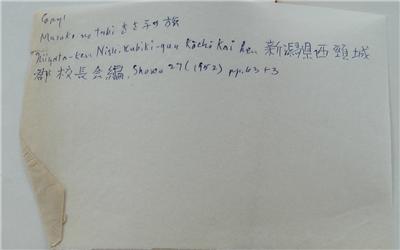 Copy 1
Masako no tabi まさ子の旅
Niigata-ken Nishi-Kubiki-gun Kōchō Kai hen. 新潟県西頸城
郡校長会編. Showa 27 (1952) pp. 63 + 3